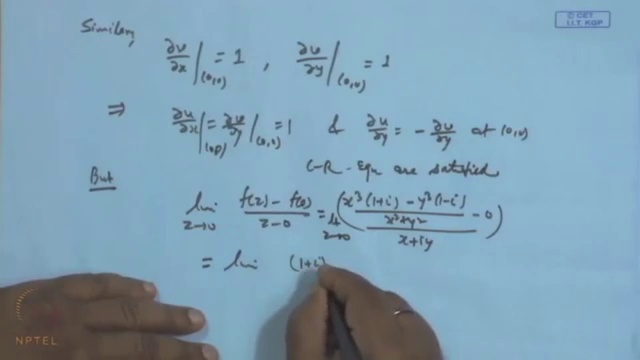 © CET
I.I.T. KGP
Similarly
∂v/∂x|(0,0) = 1 , ∂v/∂y|(0,0) = 1
⇒ ∂u/∂x|(0,0) = ∂v/∂y|(0,0) = 1 & ∂u/∂y = - ∂v/∂y at (0,0)
C-R-Equ are satisfied
But
lim z→0 f(z) - f(0) / z-0 = lt z→0 ( x³(1+i) - y³(1-i) / x³+y² - 0 / x+iy )
= lim (1+i)
NPTEL